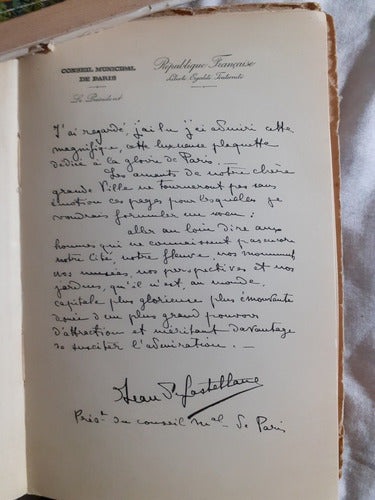 CONSEIL MUNICIPAL
DE PARIS
Le Président
République Française
Liberté Egalité Fraternité
J'ai regardé, j'ai lu j'ai admiré cette
magnifique, cette luxueuse plaquette
dédiée à la gloire de Paris. —
Les amants de notre chère
grande Ville ne tourneront pas sans
émotion ces pages pour lesquelles je
voudrais formuler un vœu :
aller au loin dire aux
hommes qui ne connaissent pas encore
notre Cité, notre fleuve, nos monuments
nos musées, nos perspectives et nos
jardins, qu'il n'est, au monde,
capitale plus glorieuse plus émouvante
douée d'un plus grand pouvoir
d'attraction et méritant davantage
de susciter l'admiration. —
Jean de Castellane
Prést du conseil mal de Paris